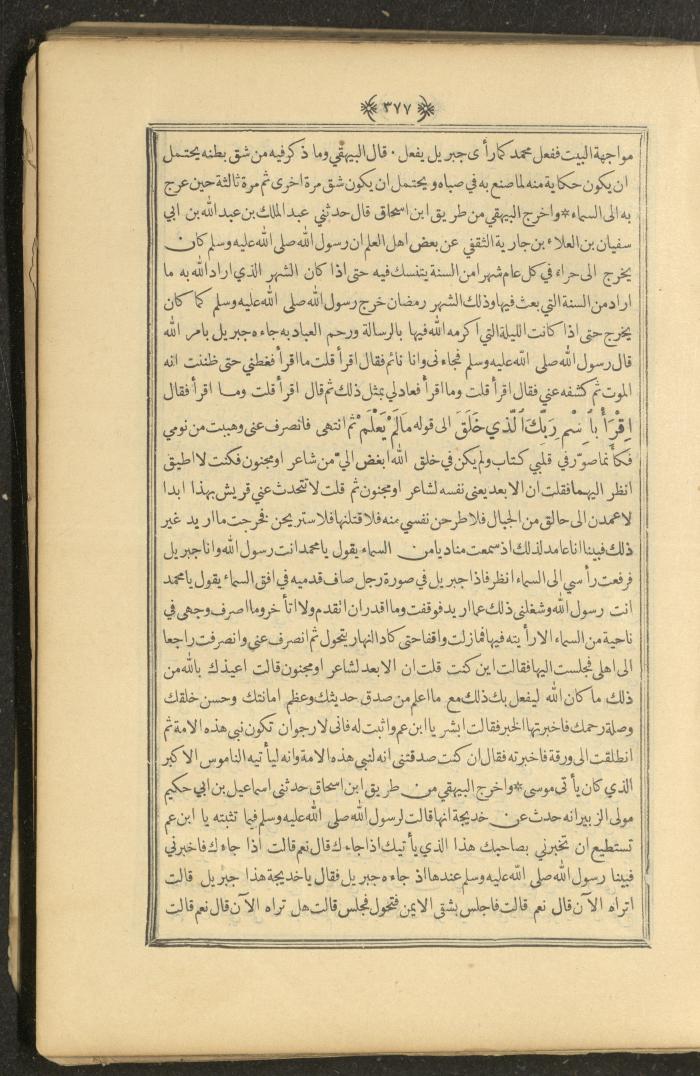 ٣٧٧
مواجهة البيت ففعل محمد كما رأى جبريل يفعل . قال البيهقي وما ذكر فيه من شق بطنه يحتمل
ان يكون حكاية منه لما صنع به في صباه ويحتمل ان يكون شق مرة اخرى ثم مرة ثالثة حين عرج
به الى السماء * واخرج البيهقي من طريق ابن اسحاق قال حدثني عبد الملك بن عبد الله بن ابي
سفيان بن العلاء بن جارية الثقفي عن بعض اهل العلم ان رسول الله صلى الله عليه وسلم كان
يخرج الى حراء في كل عام شهرا من السنة يتنسك فيه حتى اذا كان الشهر الذي اراد الله به ما
اراد من السنة التي بعث فيها وذلك الشهر رمضان خرج رسول الله صلى الله عليه وسلم كما كان
يخرج حتى اذا كانت الليلة التي اكرمه الله فيها بالرسالة ورحم العباد به جاءه جبريل بامر الله
قال رسول الله صلى الله عليه وسلم فجاءنى وانا نائم فقال اقرأ قلت ما اقرأ فغطني حتى ظننت انه
الموت ثم كشفه عني فقال اقرأ قلت وما اقرأ فعاد لي بمثل ذلك ثم قال اقرأ قلت وما اقرأ فقال
اِقْرَأْ بِاسْمِ رَبِّكَ الَّذي خَلَقَ الى قوله مَا لَمْ يَعْلَمْ ثم انتهى فانصرف عني وهببت من نومي
فكأنما صوّر في قلبي كتاب ولم يكن في خلق الله ابغض اليّ من شاعر او مجنون فكنت لا اطيق
انظر اليهما فقلت ان الابعد يعنى نفسه لشاعر او مجنون ثم قلت لا تتحدث عني قريش بهذا ابدا
لاعمدن الى حالق من الجبال فلاطرحن نفسي منه فلاقتلنها فلاستريحن فخرجت ما اريد غير
ذلك فبينا انا عامد لذلك اذ سمعت مناديا من السماء يقول يا محمد انت رسول الله وانا جبريل
فرفعت رأسي الى السماء انظر فاذا جبريل في صورة رجل صاف قدميه في افق السماء يقول يا محمد
انت رسول الله وشغلنى ذلك عما اريد فوقفت وما اقدر ان اتقدم ولا اتأخر وما اصرف وجهى في
ناحية من السماء الا رأيته فيها فما زلت واقفا حتى كاد النهار يتحول ثم انصرف عني وانصرفت راجعا
الى اهلى فجلست اليها فقالت اين كنت قلت ان الابعد لشاعر او مجنون قالت اعيذك بالله من
ذلك ما كان الله ليفعل بك ذلك مع ما اعلم من صدق حديثك وعظم امانتك وحسن خلقك
وصلة رحمك فاخبرتها الخبر فقالت ابشر يا ابن عم واثبت له فانى لارجو ان تكون نبى هذه الامة ثم
انطلقت الى ورقة فاخبرته فقال ان كنت صدقتنى انه لنبي هذه الامة وانه ليأتيه الناموس الاكبر
الذي كان يأتى موسى * واخرج البيهقي من طريق ابن اسحاق حدثني اسماعيل بن ابي حكيم
مولى الزبير انه حدث عن خديجة انها قالت لرسول الله صلى الله عليه وسلم فيما تثبته يا ابن عم
تستطيع ان تخبرني بصاحبك هذا الذي يأتيك اذا جاءك قال نعم قالت اذا جاءك فاخبرني
فبينا رسول الله صلى الله عليه وسلم عندها اذ جاءه جبريل فقال يا خديجة هذا جبريل قالت
اتراه الآن قال نعم قالت فاجلس بشقى الايمن فتحول فجلس قالت هل تراه الآن قال نعم قالت